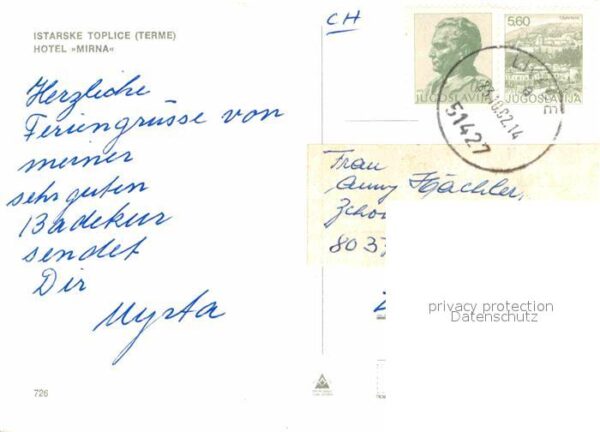 ISTARSKE TOPLICE (TERME)
HOTEL »MIRNA«
Herzliche
Feriengrüsse von
meiner
sehr guten
Badekur
sendet
Dir
Myrta
726
CH
JUGOSLAVIJA
5.60
JUGOSLAVIJA
51427
Frau
Anny Hächler
8037
privacy protection
Datenschutz